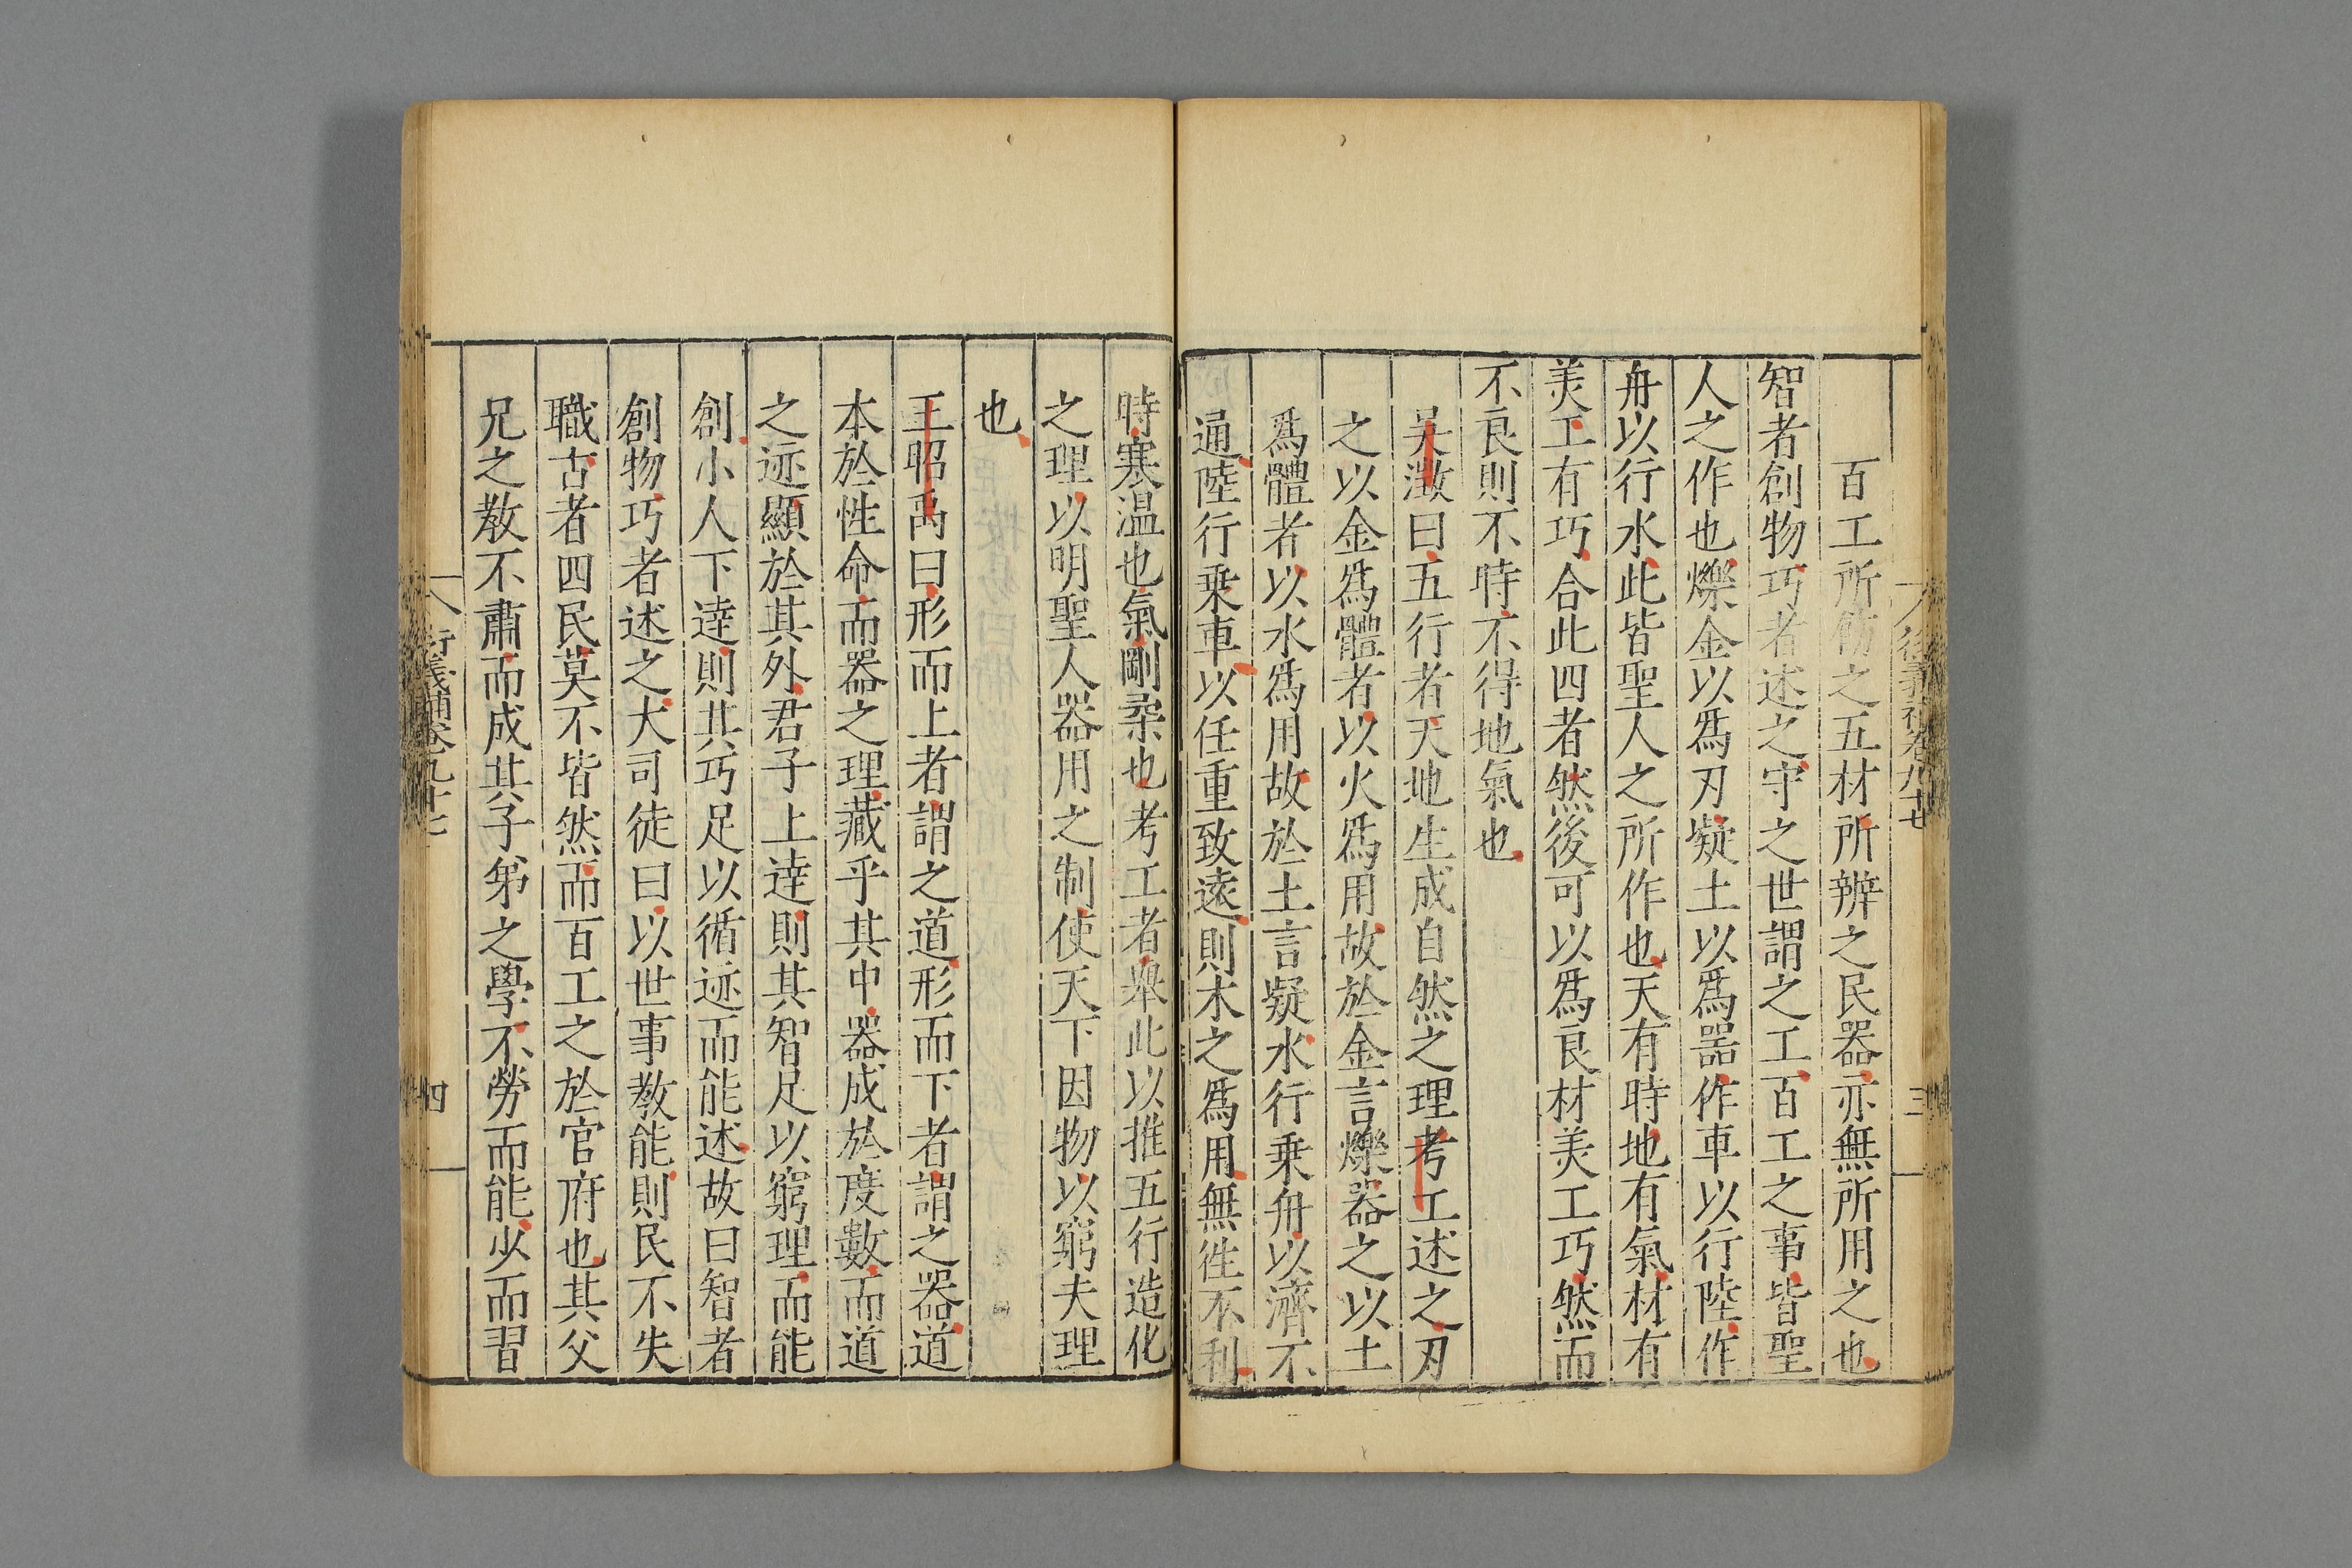 百工所飭之五材所辨之民器亦無所用之也
智者創物巧者述之守之世謂之工百工之事皆聖
人之作也爍金以爲刃凝土以爲器作車以行陸作
舟以行水此皆聖人之所作也天有時地有氣材有
美工有巧合此四者然後可以爲良材美工巧然而
不良則不時不得地氣也
吳澂曰五行者天地生成自然之理考工述之刃
之以金爲體者以火爲用故於金言爍器之以土
爲體者以水爲用故於土言凝水行乗舟以濟不
通陸行乗車以任重致遠則木之爲用無徃不利
時寒温也氣剛柔也考工者舉此以推五行造化
之理以明聖人器用之制使天下因物以窮夫理
也
王昭禹曰形而上者謂之道形而下者謂之器道
本於性命而器之理藏乎其中器成於度數而道
之迹顯於其外君子上達則其智足以窮理而能
創小人下達則其巧足以循迹而能述故曰智者
創物巧者述之大司徒曰以世事教能則民不失
職古者四民莫不皆然而百工之於官府也其父
兄之教不肅而成其子弟之學不勞而能少而習
衍義補卷九十七
四